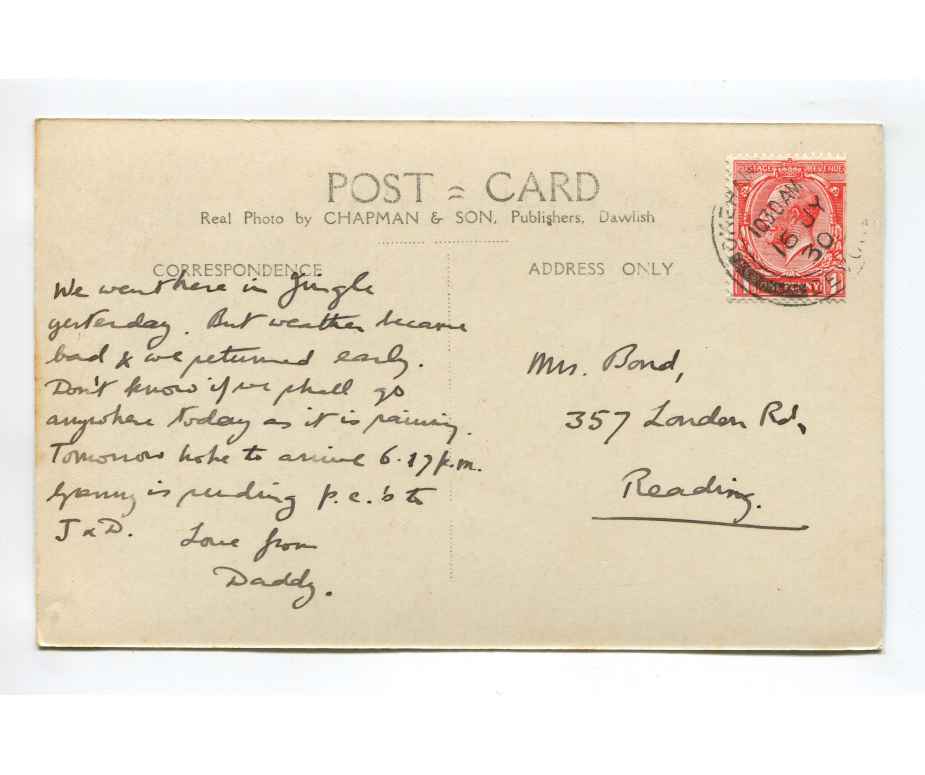 POSTAGE REVENUE
POST = CARD
Real Photo by CHAPMAN & SON, Publishers, Dawlish
10 30 AM
16 JY
30
CORRESPONDENCE
ADDRESS ONLY
We went here in Jingle
yesterday. But weather became
bad & we returned early.
Don't know if we shall go
anywhere today as it is raining.
Tomorrow hope to arrive 6.17 p.m.
Granny is sending p.c.'s to
J & D.
Love from
Daddy.
Mrs. Bond,
357 London Rd,
Reading.